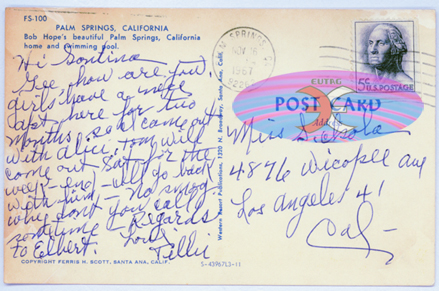 FS-100
PALM SPRINGS, CALIFORNIA
Bob Hope's beautiful Palm Springs, California
home and swimming pool.
Hi Santina
Gee, how are you,
girls, have a nice
apt here for two
months, Sal came out
with Alice, Tom will
come out Sat for the
week-end - will go back
with him - no smog
why don't you call
sometime - Regards
to Elbert. Love
Tillie
COPYRIGHT FERRIS H. SCOTT, SANTA ANA, CALIF.
S-43967L3-11
Western Resort Publications, 1320 N. Broadway, Santa Ana, Calif.
SPRINGS
1967
5¢ U.S. POSTAGE
POST CARD
Miss
4876 Wicopee Ave
Los Angeles 41
Cal-